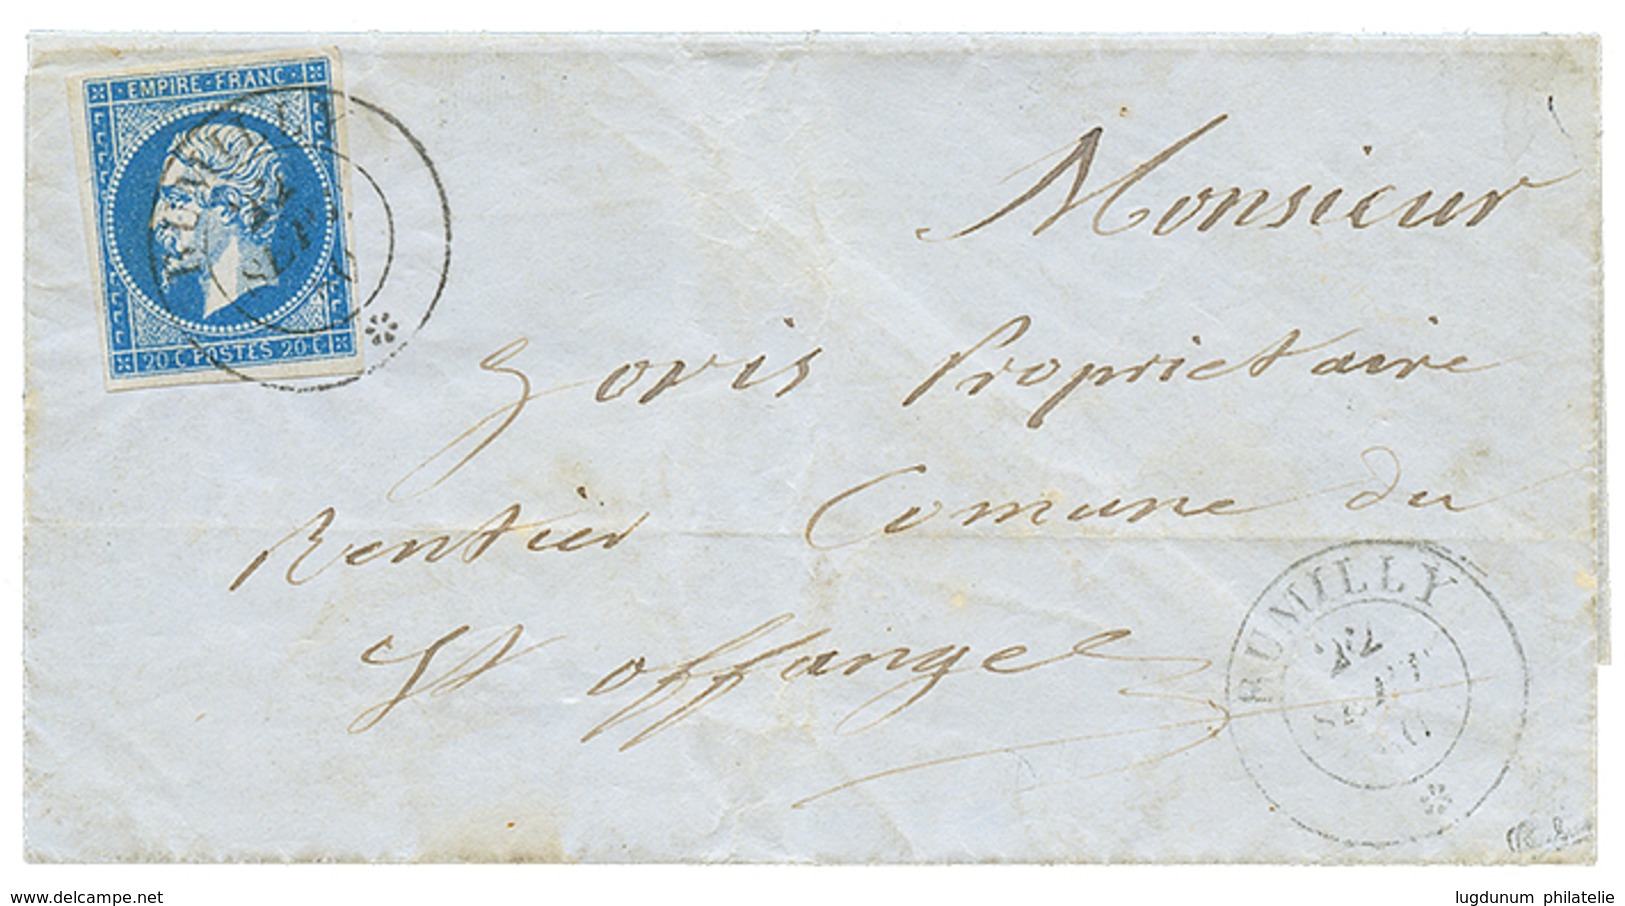 EMPIRE · FRANC
20 C POSTES 20 C
RUMILLY
SEPT
Monsieur
Goris Propriétaire
Rentier Comune du
St offange
RUMILLY
22
SEPT
60
www.delcampe.net
lugdunum philatelie